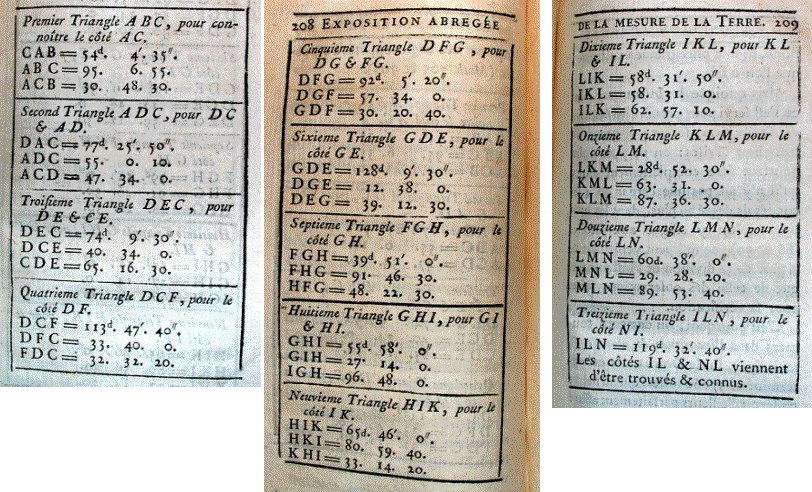 Premier Triangle ABC, pour con-
noître le côté AC.
CAB = 54d. 4'. 35".
ABC = 95. 6. 55.
ACB = 30. 48. 30.
Second Triangle ADC, pour DC
& AD.
DAC = 77d. 25'. 50".
ADC = 55. 0. 10.
ACD = 47. 34. 0.
Troisieme Triangle DEC, pour
DE & CE.
DEC = 74d. 9'. 30".
DCE = 40. 34. 0.
CDE = 65. 16. 30.
Quatrieme Triangle DCF, pour le
côté DF.
DCF = 113d. 47'. 40".
DFC = 33. 40. 0.
FDC = 32. 32. 20.
208 EXPOSITION ABREGÉE
Cinquieme Triangle DFG, pour
DG & FG.
DFG = 92d. 5'. 20".
DGF = 57. 34. 0.
GDF = 30. 20. 40.
Sixieme Triangle GDE, pour le
côté GE.
GDE = 128d. 9'. 30".
DGE = 12. 38. 0.
DEG = 39. 12. 30.
Septieme Triangle FGH, pour le
côté GH.
FGH = 39d. 51'. 0".
FHG = 91. 46. 30.
HFG = 48. 22. 30.
Huitieme Triangle GHI, pour GI
& HI.
GHI = 55d. 58'. 0".
GIH = 27. 14. 0.
IGH = 96. 48. 0.
Neuvieme Triangle HIK, pour le
côté IK.
HIK = 65d. 46'. 0".
HKI = 80. 59. 40.
KHI = 33. 14. 20.
DE LA MESURE DE LA TERRE. 209
Dixieme Triangle IKL, pour KL
& IL.
LIK = 58d. 31'. 50".
IKL = 58. 31. 0.
ILK = 62. 57. 10.
Onzieme Triangle KLM, pour le
côté LM.
LKM = 28d. 52. 30".
KML = 63. 31. 0.
KLM = 87. 36. 30.
Douzieme Triangle LMN, pour le
côté LN.
LMN = 60d. 38'. 0".
MNL = 29. 28. 20.
MLN = 89. 53. 40.
Treizieme Triangle ILN, pour le
côté NI.
ILN = 119d. 32'. 40".
Les côtés IL & NL viennent
d'être trouvés & connus.